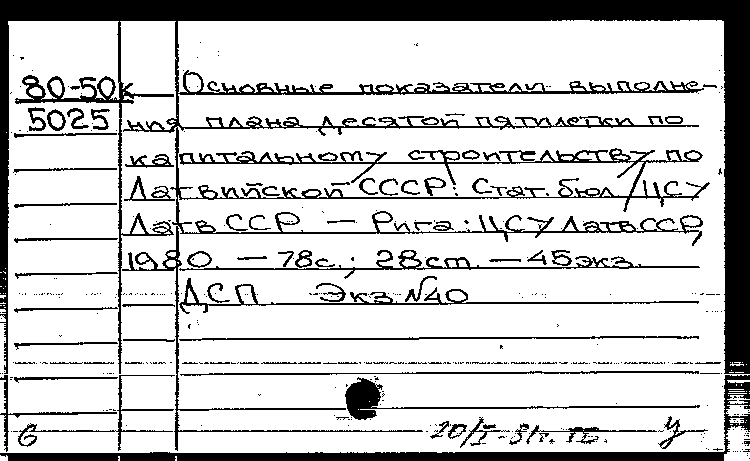 80-50к Основные показатели выполне-
5025 ния плана десятой пятилетки по
капитальному строительству по
Латвийской СССР: Стат. бюл / ЦСУ
Латв ССР. — Рига: ЦСУ Латв ССР,
1980. — 78с.; 28 см. — 45 экз.
ДСП Экз N40
6 20/I-81г. У